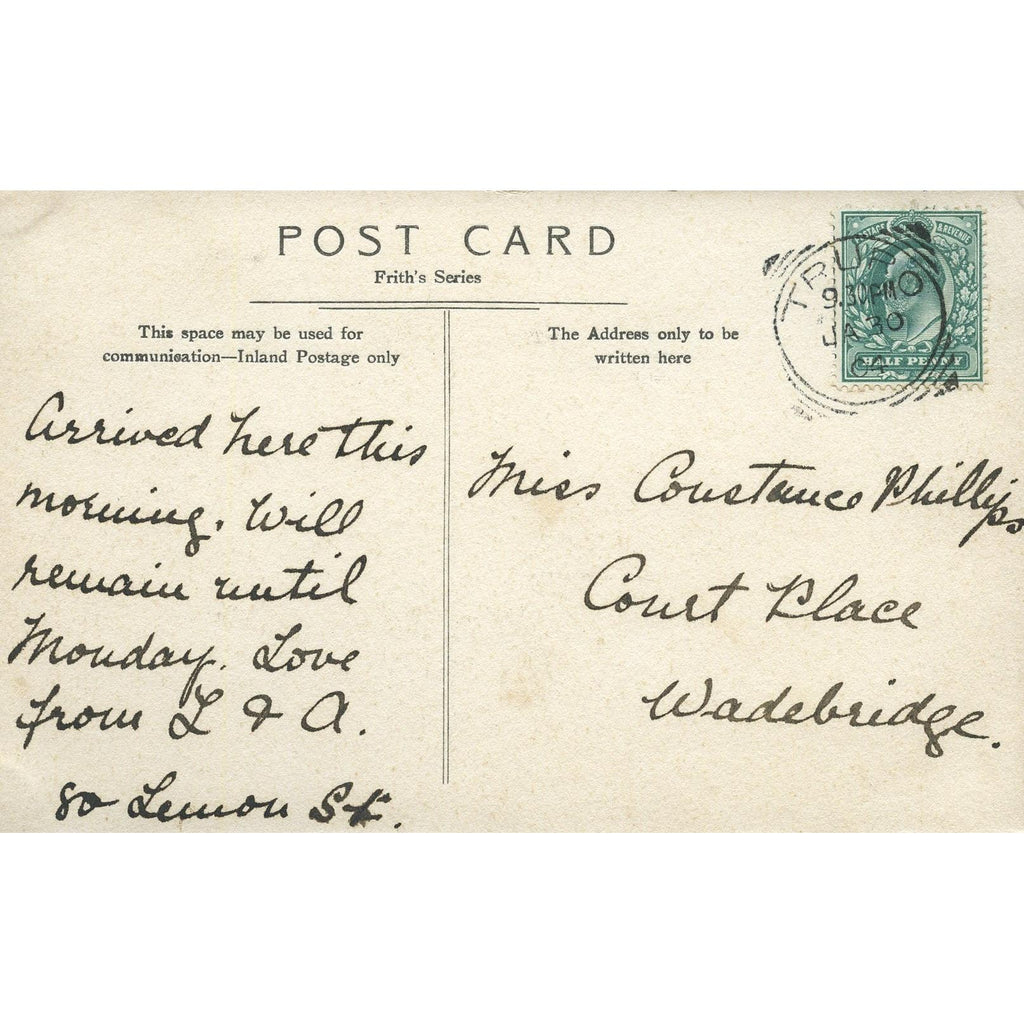 POST CARD
Frith's Series
This space may be used for
communication—Inland Postage only
The Address only to be
written here
POSTAGE & REVENUE
HALF PENNY
TRURO
9.30PM
JA 30
04
Arrived here this
morning. Will
remain until
Monday. Love
from L & A.
80 Lemon St.
Miss Constance Phillips
Court Place
Wadebridge.